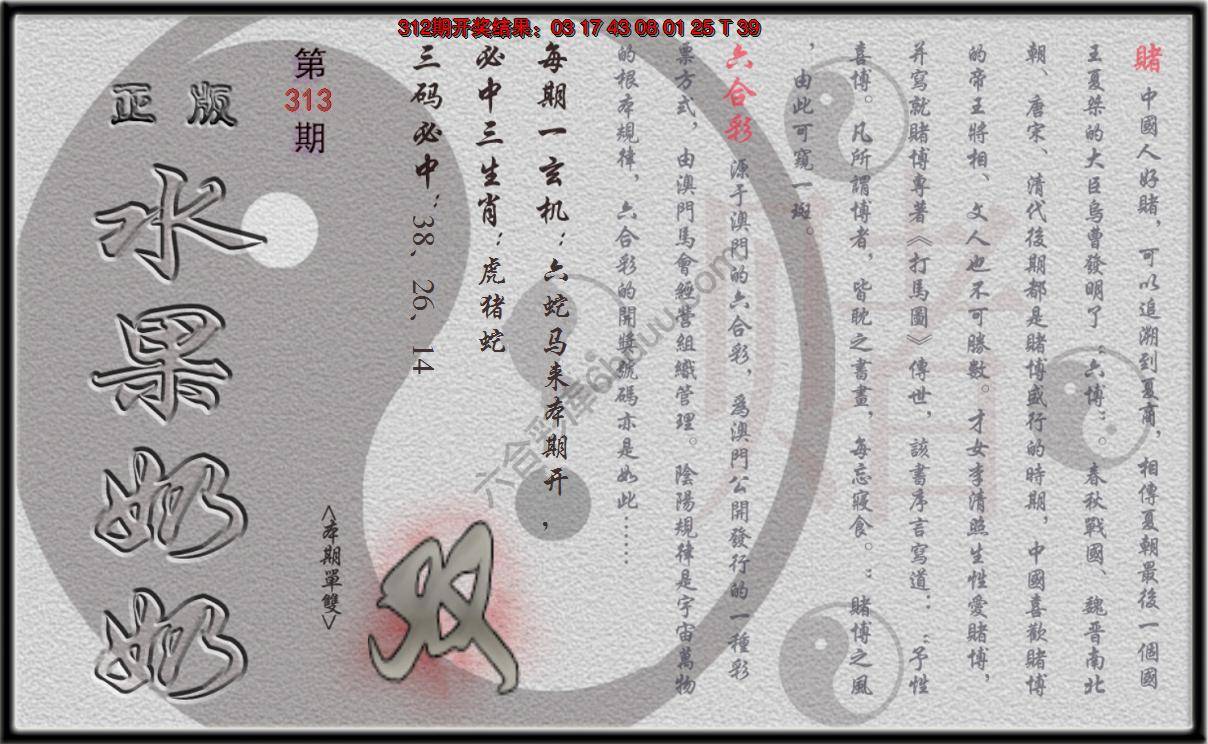 312期开奖结果：03 17 43 06 01 25 T 39
賭 中國人好賭，可以追溯到夏商，相傳夏朝最後一個國
王夏桀的大臣烏曹發明了“六博”。春秋戰國、魏晉南北
朝、唐宋、清代後期都是賭博盛行的時期，中國喜歡賭博
的帝王將相、文人也不可勝數。才女李清照生性愛賭博，
并寫就賭博專著《打馬圖》傳世，該書序言寫道：“予性
喜博。凡所謂博者，皆眈之書畫，每忘寢食。：賭博之風
，由此可窺一斑。
六合彩 源于澳門的六合彩，爲澳門公開發行的一種彩
票方式，由澳門馬會經營組織管理。陰陽規律是宇宙萬物
的根本規律，六合彩的開獎號碼亦是如此……
每期一玄机：六蛇马来本期开，
必中三生肖：虎猪蛇
三码必中：38、26、14
双
<本期單雙>
第
313
期
正版
水果奶奶
賭
六合彩库6hduu.com